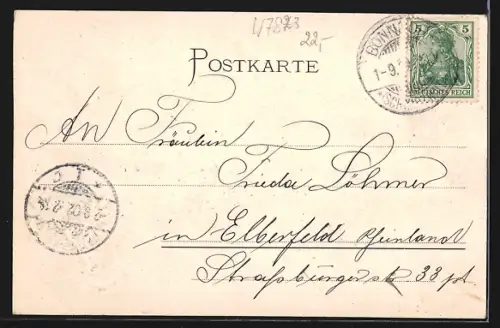 V7823
22,-
POSTKARTE
BONN
1-9.
5
DEUTSCHES REICH
An Fräulein
Frieda Löhmer
in Elberfeld Rheinland
Straßburgerstr 33 pt.